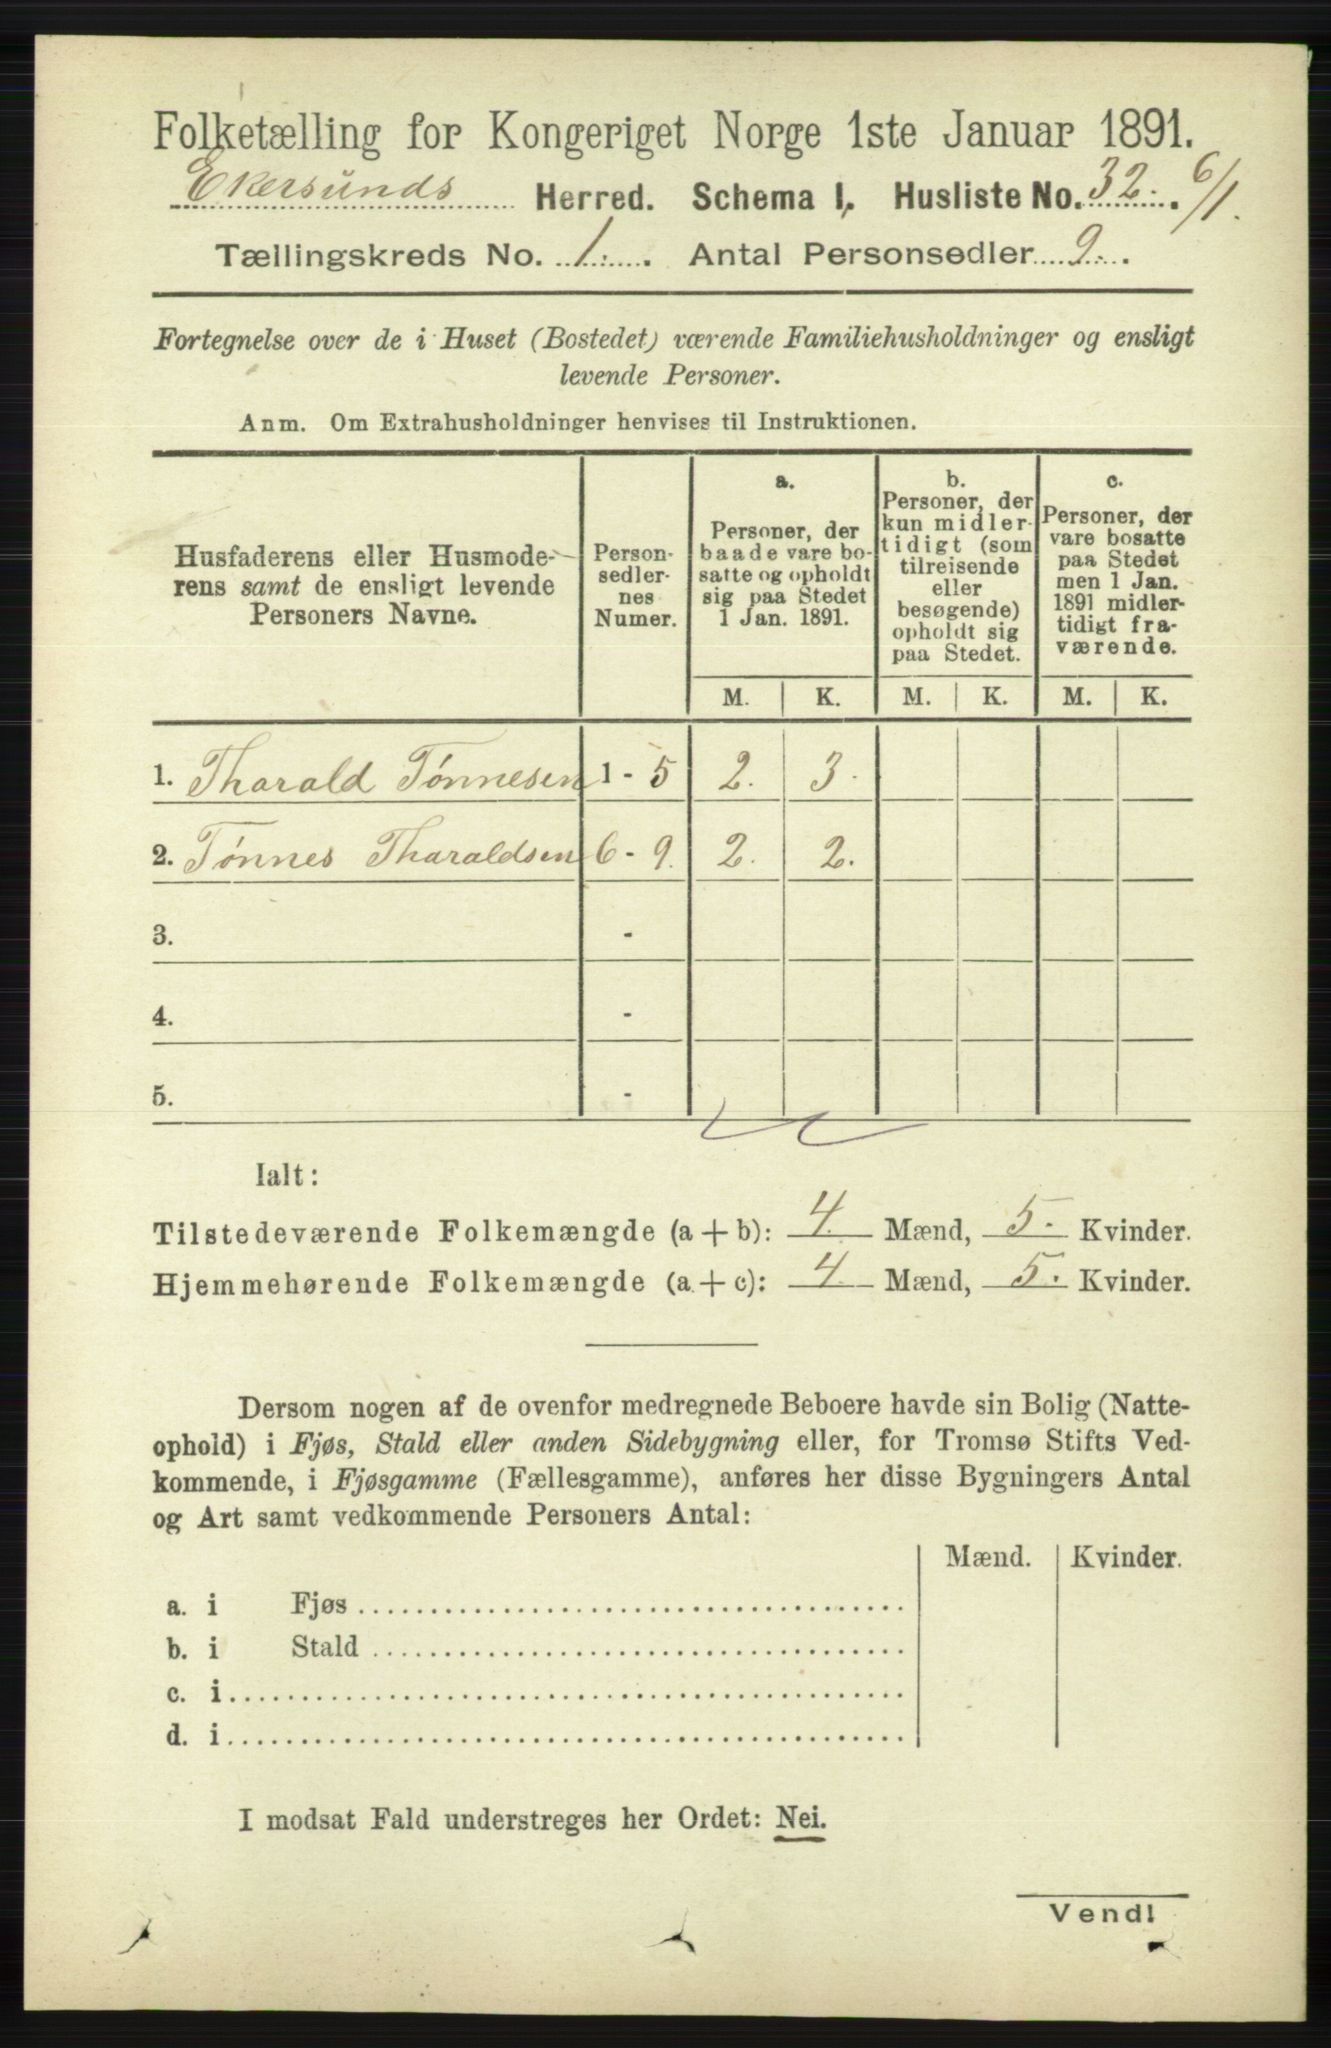 Folketælling for Kongeriget Norge 1ste Januar 1891.
Ekersunds Herred. Schema I. Husliste No. 32. 6/1.
Tællingskreds No. 1. Antal Personsedler 9.
Fortegnelse over de i Huset (Bostedet) værende Familiehusholdninger og ensligt
levende Personer.
Anm. Om Extrahusholdninger henvises til Instruktionen.
Husfaderens eller Husmode-
rens samt de ensligt levende
Personers Navne.
Person-
sedler-
nes
Numer.
a.
Personer, der
baade vare bo-
satte og opholdt
sig paa Stedet
1 Jan. 1891.
b.
Personer, der
kun midler-
tidigt (som
tilreisende
eller
besøgende)
opholdt sig
paa Stedet.
c.
Personer, der
vare bosatte
paa Stedet
men 1 Jan.
1891 midler-
tidigt fra-
værende.
M. K. M. K. M. K.
1. Tharald Tønnesen 1 - 5 2. 3.
2. Tønnes Tharaldsen 6 - 9. 2. 2.
3. -
4. -
5. -
Ialt:
Tilstedeværende Folkemængde (a + b): 4. Mænd, 5. Kvinder.
Hjemmehørende Folkemængde (a + c): 4. Mænd, 5. Kvinder.
Dersom nogen af de ovenfor medregnede Beboere havde sin Bolig (Natte-
ophold) i Fjøs, Stald eller anden Sidebygning eller, for Tromsø Stifts Ved-
kommende, i Fjøsgamme (Fællesgamme), anføres her disse Bygningers Antal
og Art samt vedkommende Personers Antal:
Mænd. Kvinder.
a. i Fjøs
b. i Stald
c. i
d. i
I modsat Fald understreges her Ordet: Nei.
Vend!